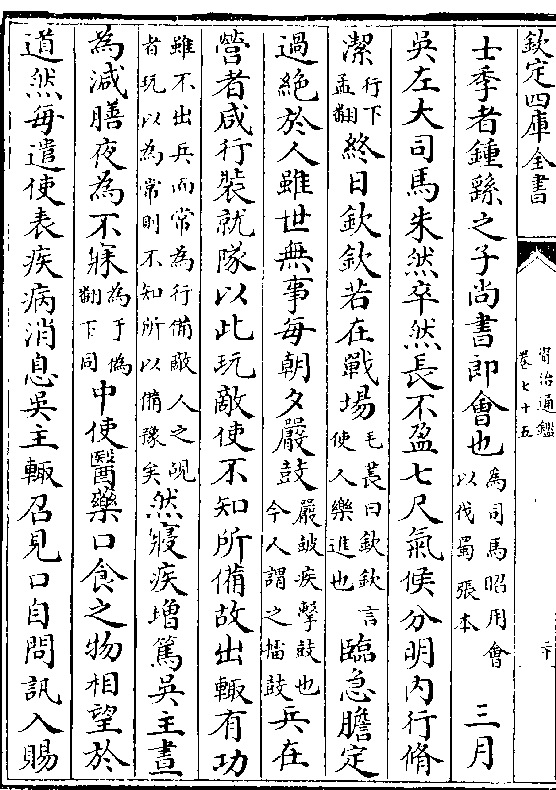 欽定四庫全書
資治通鑑
卷七十五
士季者鍾繇之子尚書郎會也為司馬昭用會以伐蜀張本 三月
吳左大司馬朱然卒然長不盈七尺氣候分明内行脩
潔行下孟翻終日欽欽若在戰塲毛萇曰欽欽言使人樂進也臨急膽定
過絶於人雖世無事每朝夕嚴鼓嚴鼓疾擊鼓也今人謂之擂鼓兵在
營者咸行裝就隊以此玩敵使不知所備故出輒有功
雖不出兵而常為行備敵人之覘者玩以為常則不知所以備豫矣然寢疾増篤吳主晝
為減膳夜為不寐為于偽翻下同中使醫藥口食之物相望於
道然每遣使表疾病消息吳主輒召見口自問訊入賜